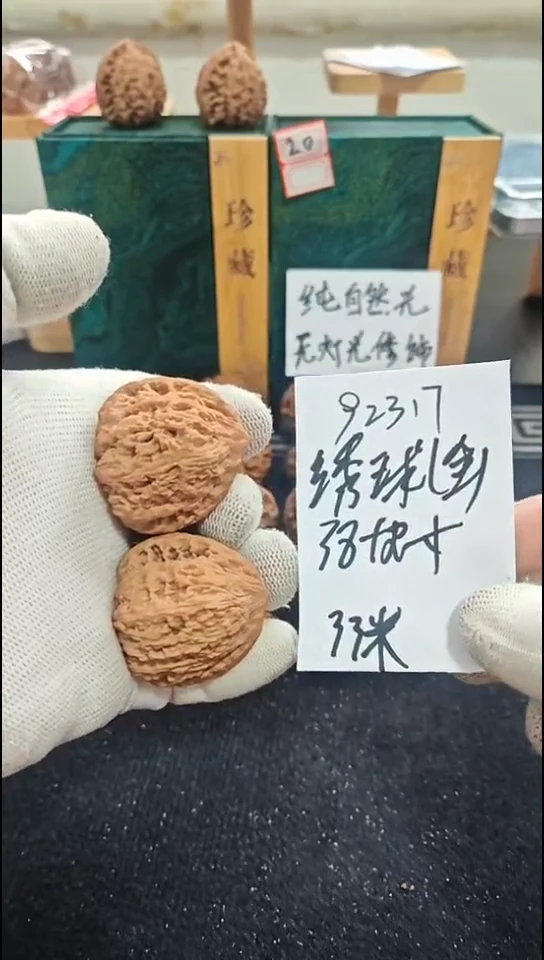 20
珍藏
珍藏
纯自然光
无灯光修饰
92317
绣球(全)
38+中寸
33米